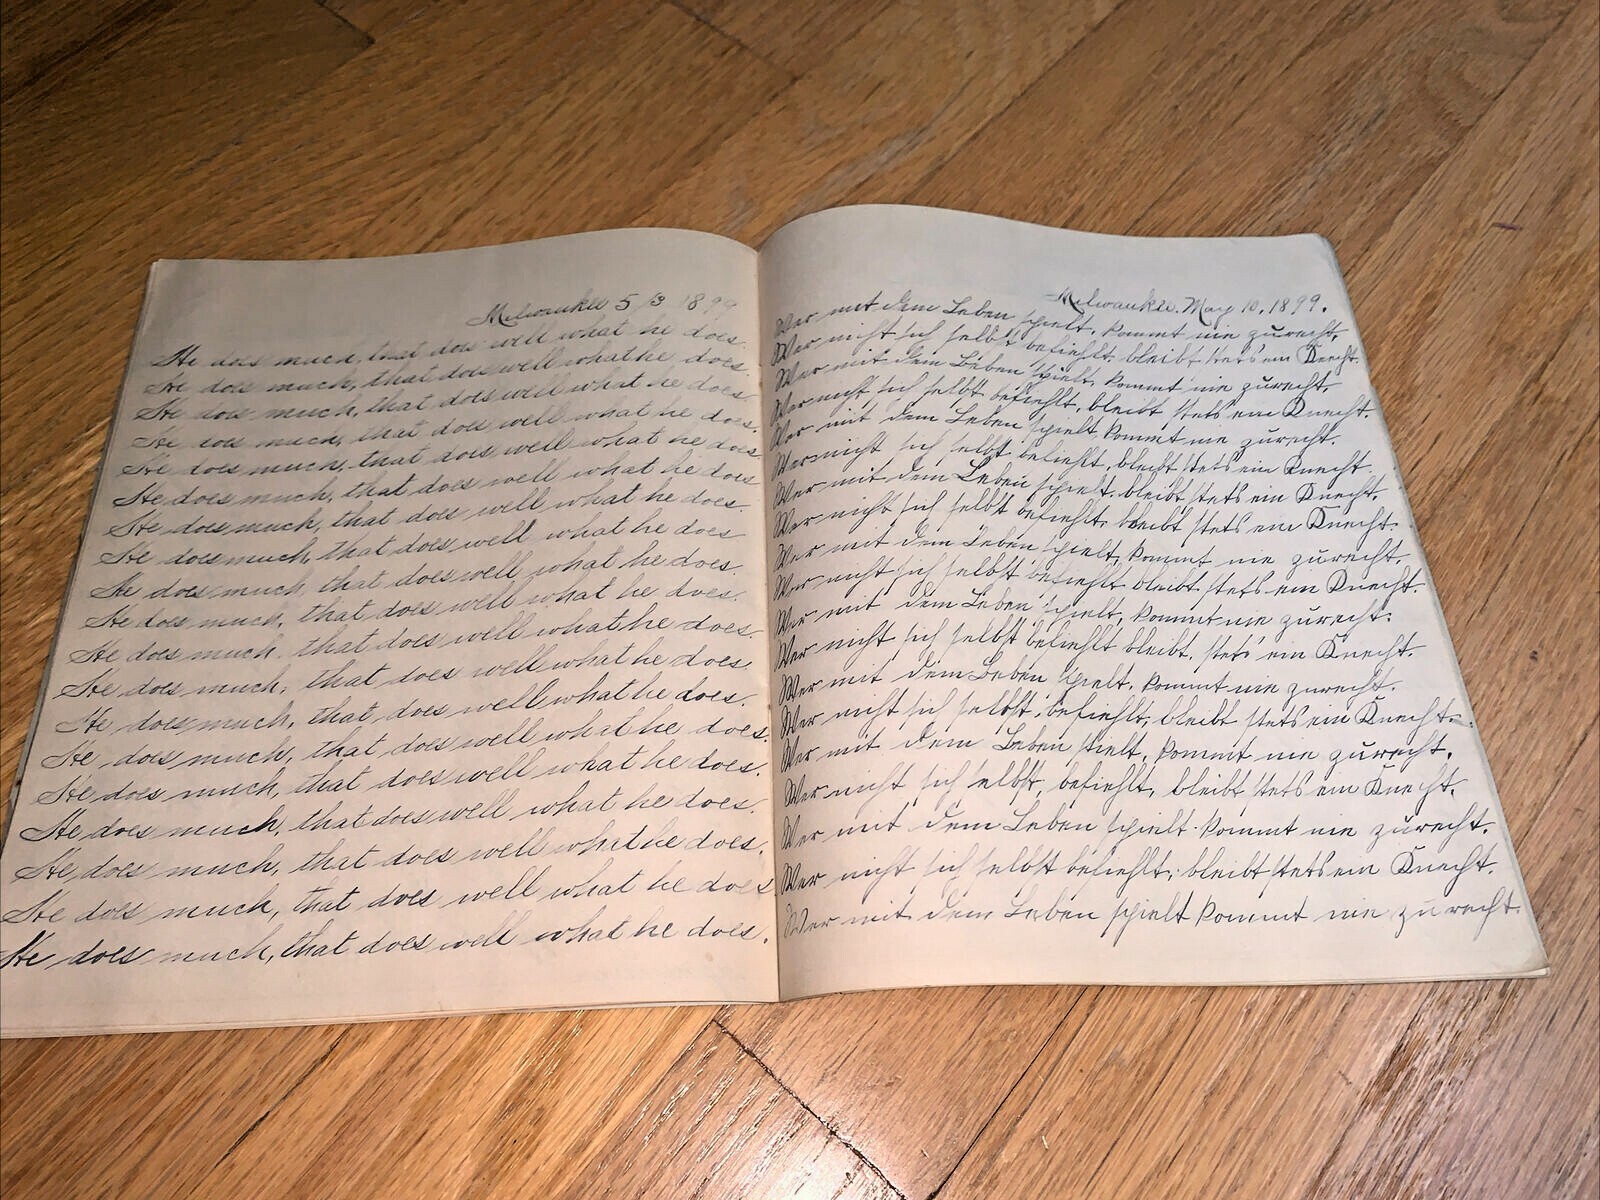 Milwaukee 5/3 1899
He does much, that does well what he does.
He does much, that does well what he does.
He does much, that does well what he does.
He does much, that does well what he does.
He does much, that does well what he does
He does much, that does well what he does
He does much, that does well what he does.
He does much, that does well what he does
He does much, that does well what he does.
He does much, that does well what he does.
He does much, that does well what he does.
He does much, that does well what he does.
He does much, that does well what he does.
He does much, that does well what he does.
He does much, that does well what he does.
He does much, that does well what he does.
He does much, that does well what he does.
He does much, that does well what he does
He does much, that does well what he does.
Milwaukee, May 10, 1899.
Wer mit dem Leben spielt, kommt nie zurecht,
Wer nicht sich selbst befiehlt, bleibt stets ein Knecht.
Wer mit dem Leben spielt, kommt nie zurecht,
Wer nicht sich selbst befiehlt, bleibt stets ein Knecht.
Wer mit dem Leben spielt, kommt nie zurecht.
Wer nicht sich selbst befiehlt, bleibt stets ein Knecht.
Wer mit dem Leben spielt, bleibt stets ein Knecht,
Wer nicht sich selbst befiehlt, bleibt stets ein Knecht.
Wer mit dem Leben spielt, kommt nie zurecht,
Wer nicht sich selbst befiehlt bleibt stets ein Knecht.
Wer mit dem Leben spielt, kommt nie zurecht.
Wer nicht sich selbst befiehlt bleibt, stets ein Knecht.
Wer mit dem Leben spielt, kommt nie zurecht.
Wer nicht sich selbst, befiehlt, bleibt stets ein Knecht.
Wer mit dem Leben stielt, kommt nie zurecht.
Wer nicht sich selbst, befiehlt, bleibt stets ein Knecht.
Wer mit dem Leben spielt kommt nie zurecht.
Wer nicht sich selbst befiehlt, bleibt stets ein Knecht.
Wer mit dem Leben spielt kommt nie zurecht.